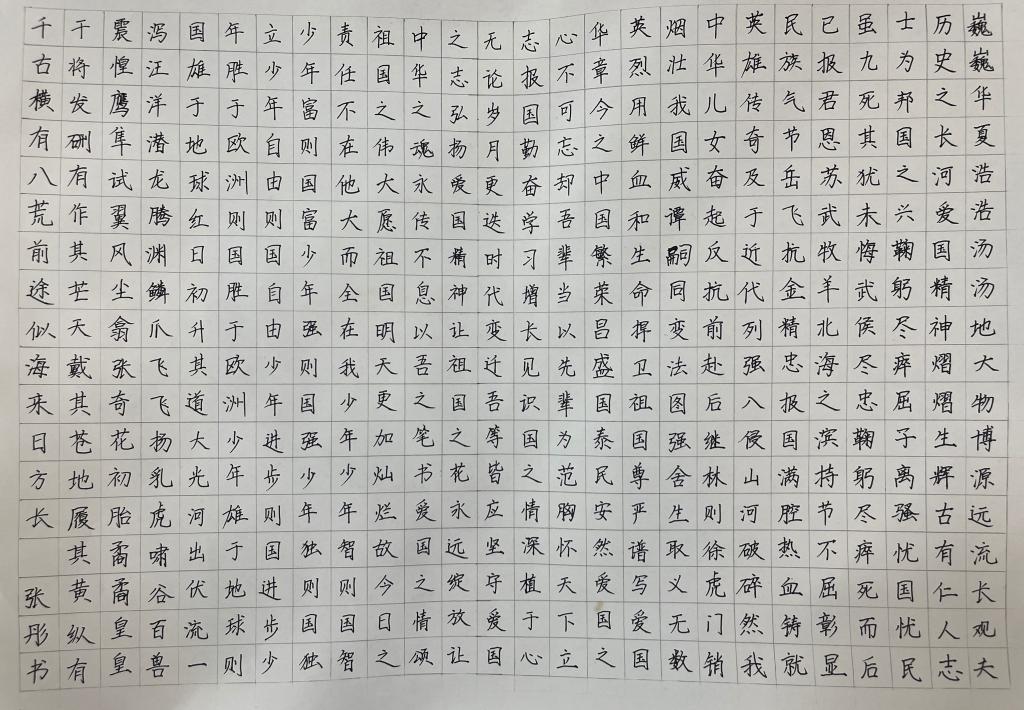 巍巍华夏浩浩汤汤地大物博源远流长观夫
历史之长河爱国精神熠熠生辉古有仁人志
士为邦国之兴鞠躬尽瘁屈子离强忧国忧民
虽九死其犹未悔武侯尽忠鞠躬尽瘁死而后
已报君恩苏武牧羊北海之滨持节不屈彰显
民族气节岳飞抗金精忠报国满腔热血铸就
英雄传奇及于近代列强入侵山河破碎然我
中华儿女奋起反抗前赴后继林则徐虎门销
烟壮我国威谭嗣同变法图强舍生取义无数
英烈用鲜血和生命捍卫祖国尊严谱写爱国
华章今之中国繁荣昌盛国泰民安然爱国之
心不可志却吾辈当以先辈为范胸怀天下立
志报国勤奋学习增长见识国之情深植于心
无论岁月更迭时代变迁吾等皆应坚守爱国
之志弘扬爱国精神让祖国之花永远绽放让
中华之魂永传不息以吾之笔书爱国之情颂
祖国之伟大愿祖国明天更加灿烂故今日之
责任不在他大而全在我少年少年智则国智
少年富则国富少年强则国强少年独则国独
立少年自由则国自由少年进步则国进步少
年胜于欧洲则国胜于欧洲少年雄于地球则
国雄于地球红日初升其道大光河出伏流一
泻汪洋潜龙腾渊鳞爪飞飞扬乳虎啸谷百兽
震惶鹰隼试翼风尘翕张奇花初胎矞矞皇皇
干将发硎有作其芒天戴其苍地履其黄纵有
千古横有八荒前途似海来日方长
张彤书